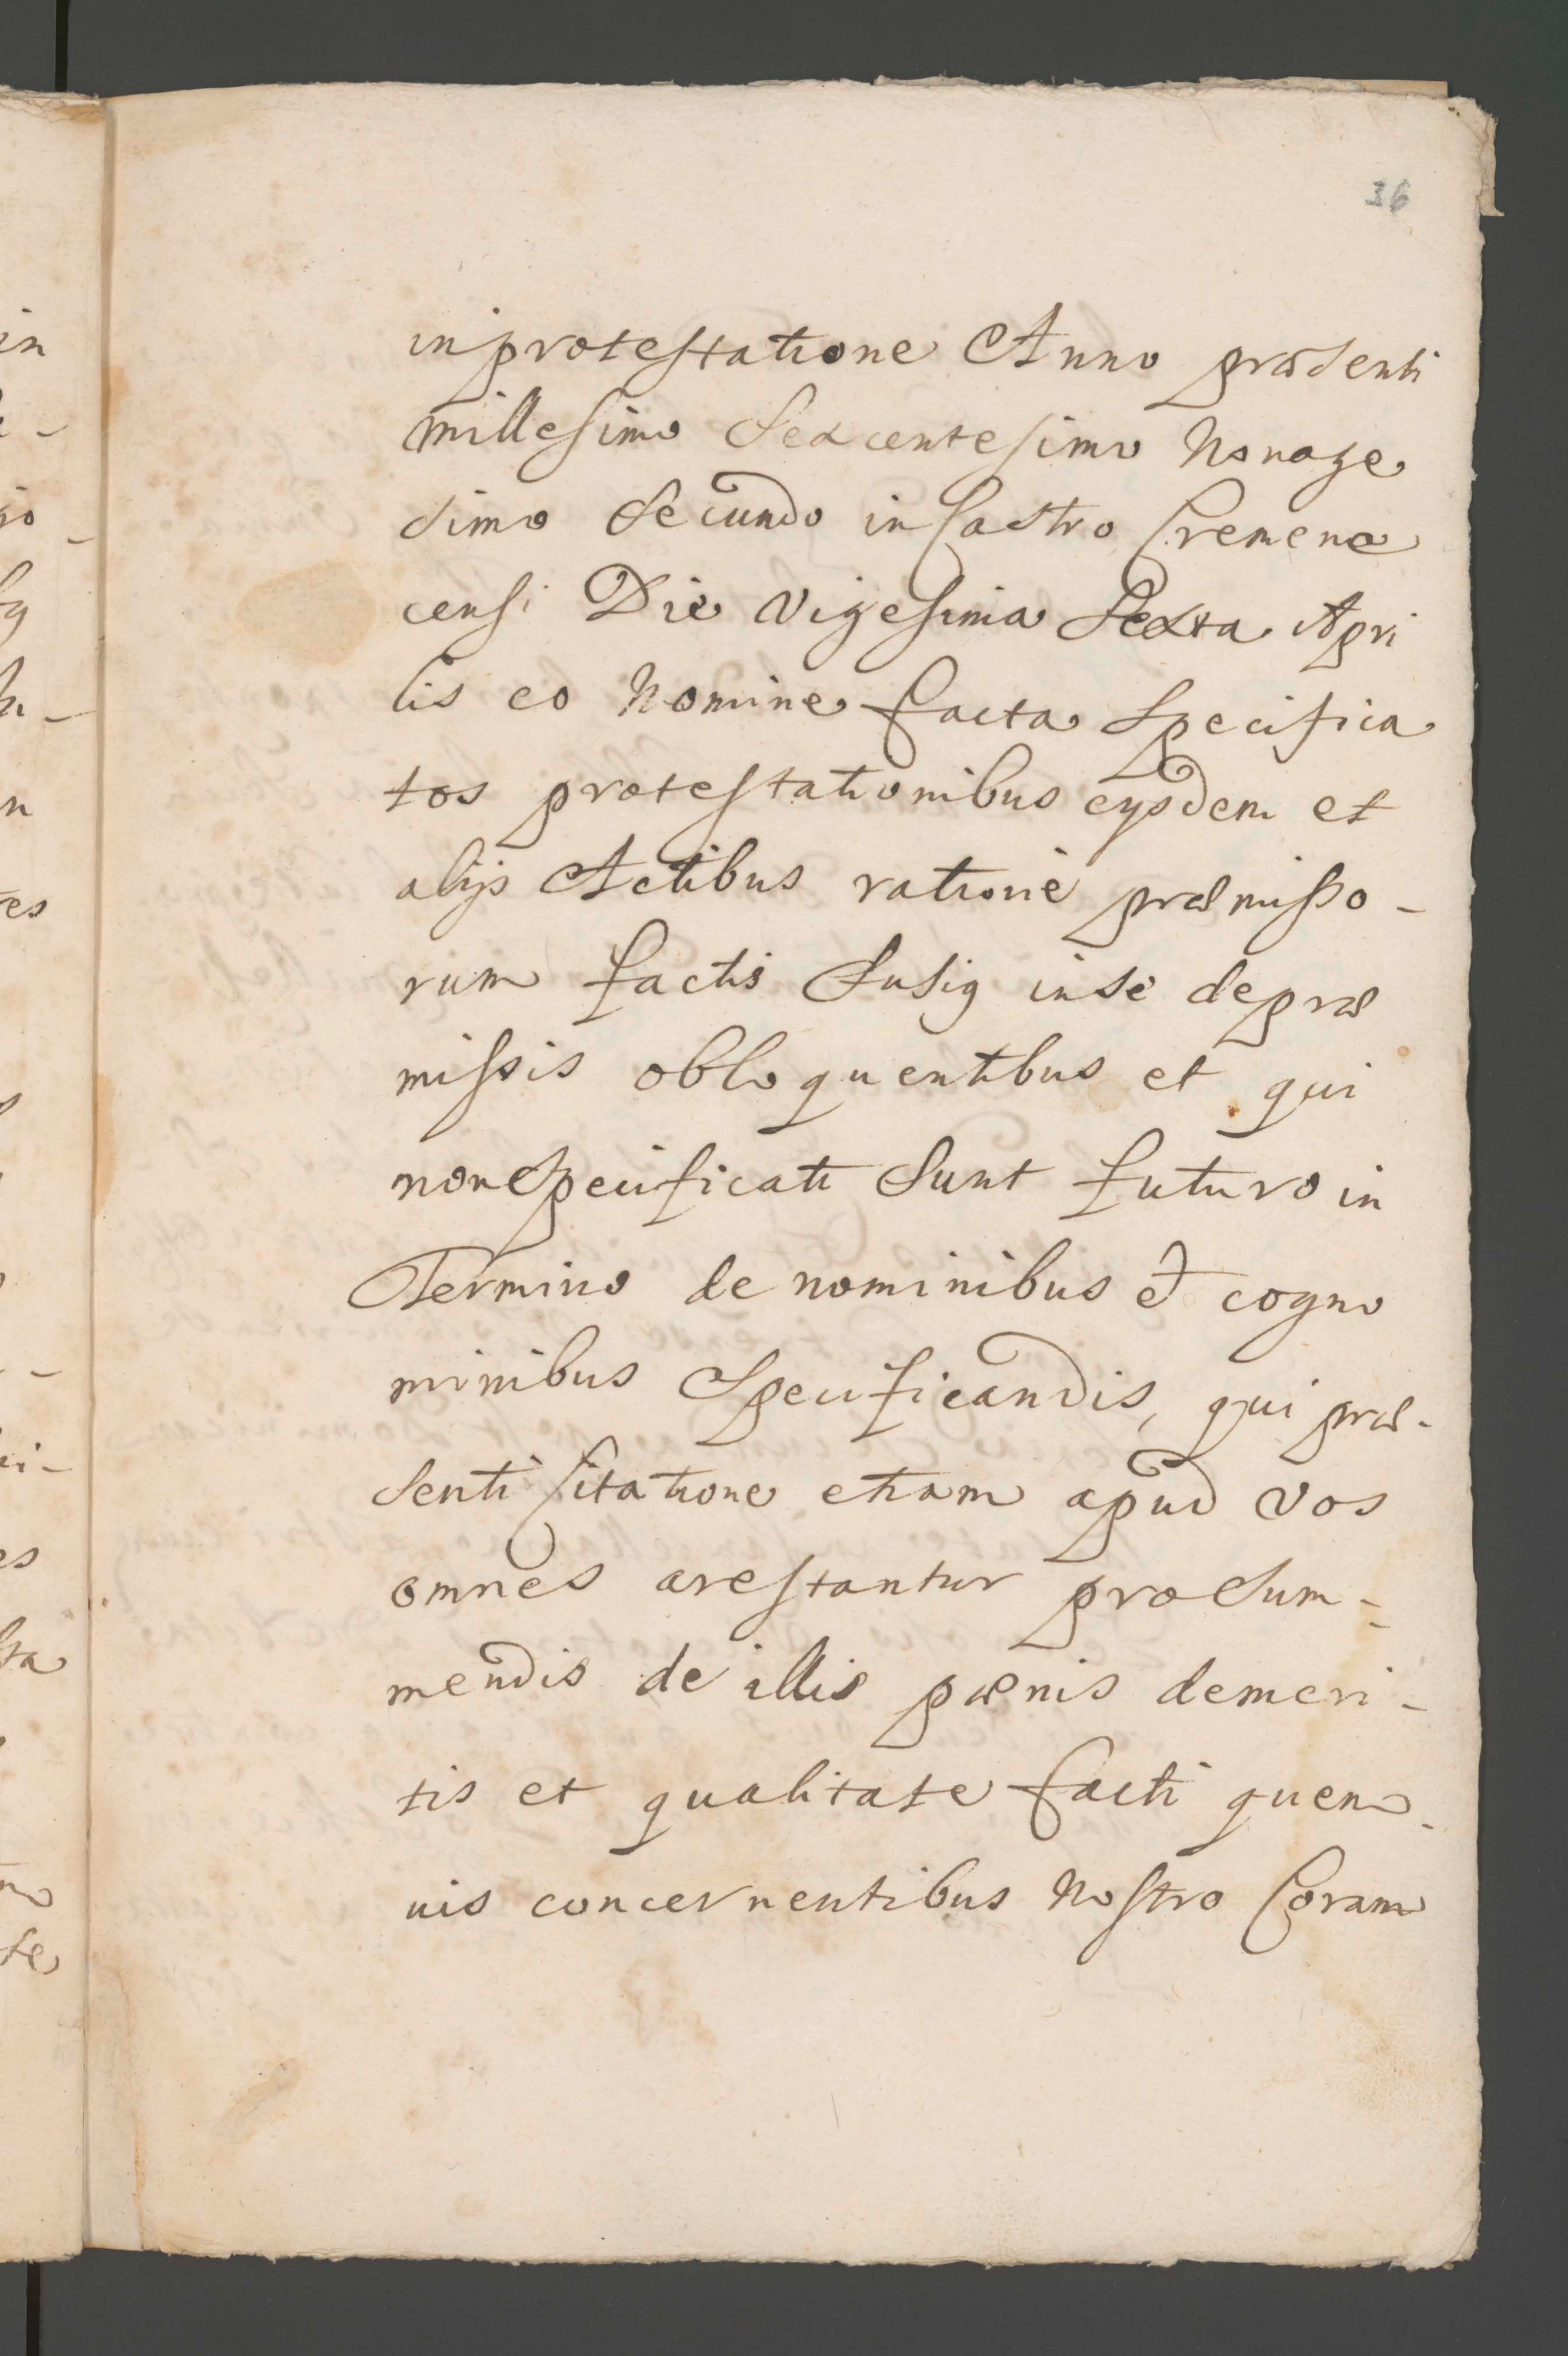 36
in protestatione Anno præsenti
millesimo Sexcentesimo Nonage
simo Secundo in Castro Cremene
censi Die Vigesima Sexta Apri
lis eo Nomine facta Specifica
tos protestationibus eysdem et
alijs Actibus ratione præmisso-
rum factis fusiq in se de præ
missis obloquentibus et qui
non Specificati Sunt futuro in
Termino de nominibus et cogno
minibus Specificandis, qui præ-
senti Citatione etiam apud vos
omnes arestantur pro Sum-
mendis de illis pœnis demeri-
tis et qualitate facti quem-
uis concernentibus Nostro Coram